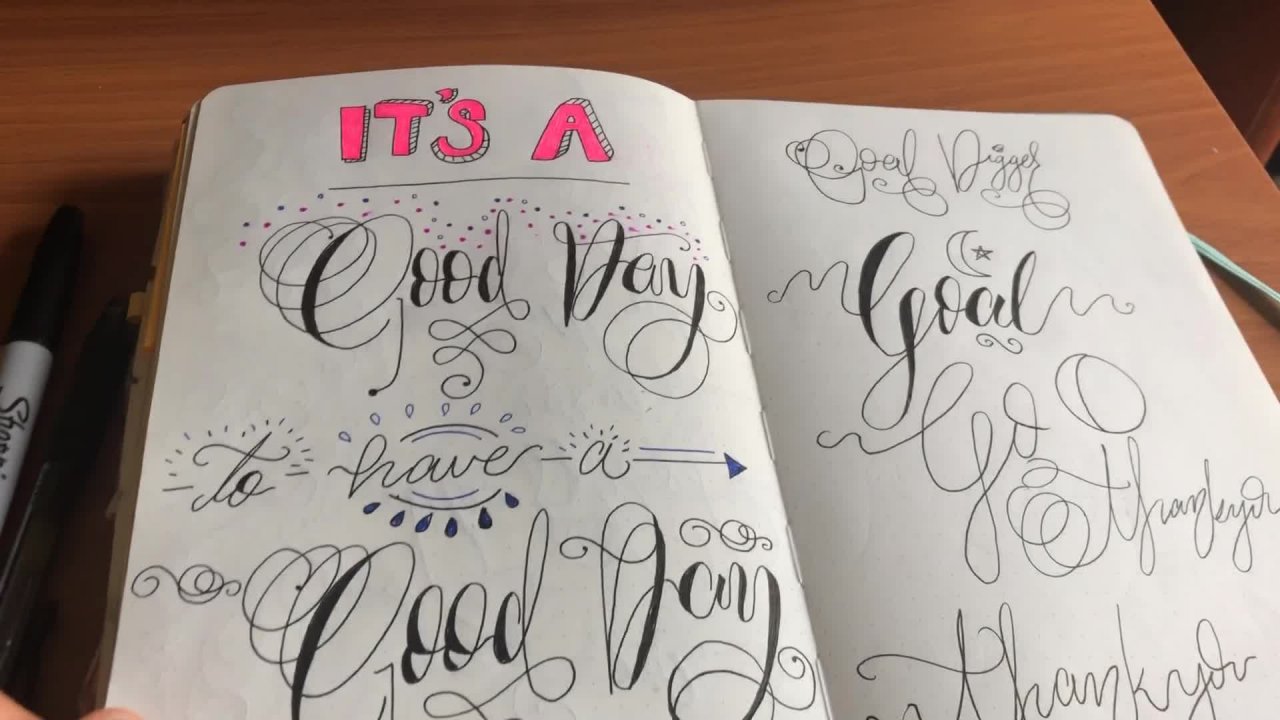 IT'S A
Good Day
to have a
Good Day
Goal Digger
Goal
Go
Thankyou
Thankyou
Sharpie